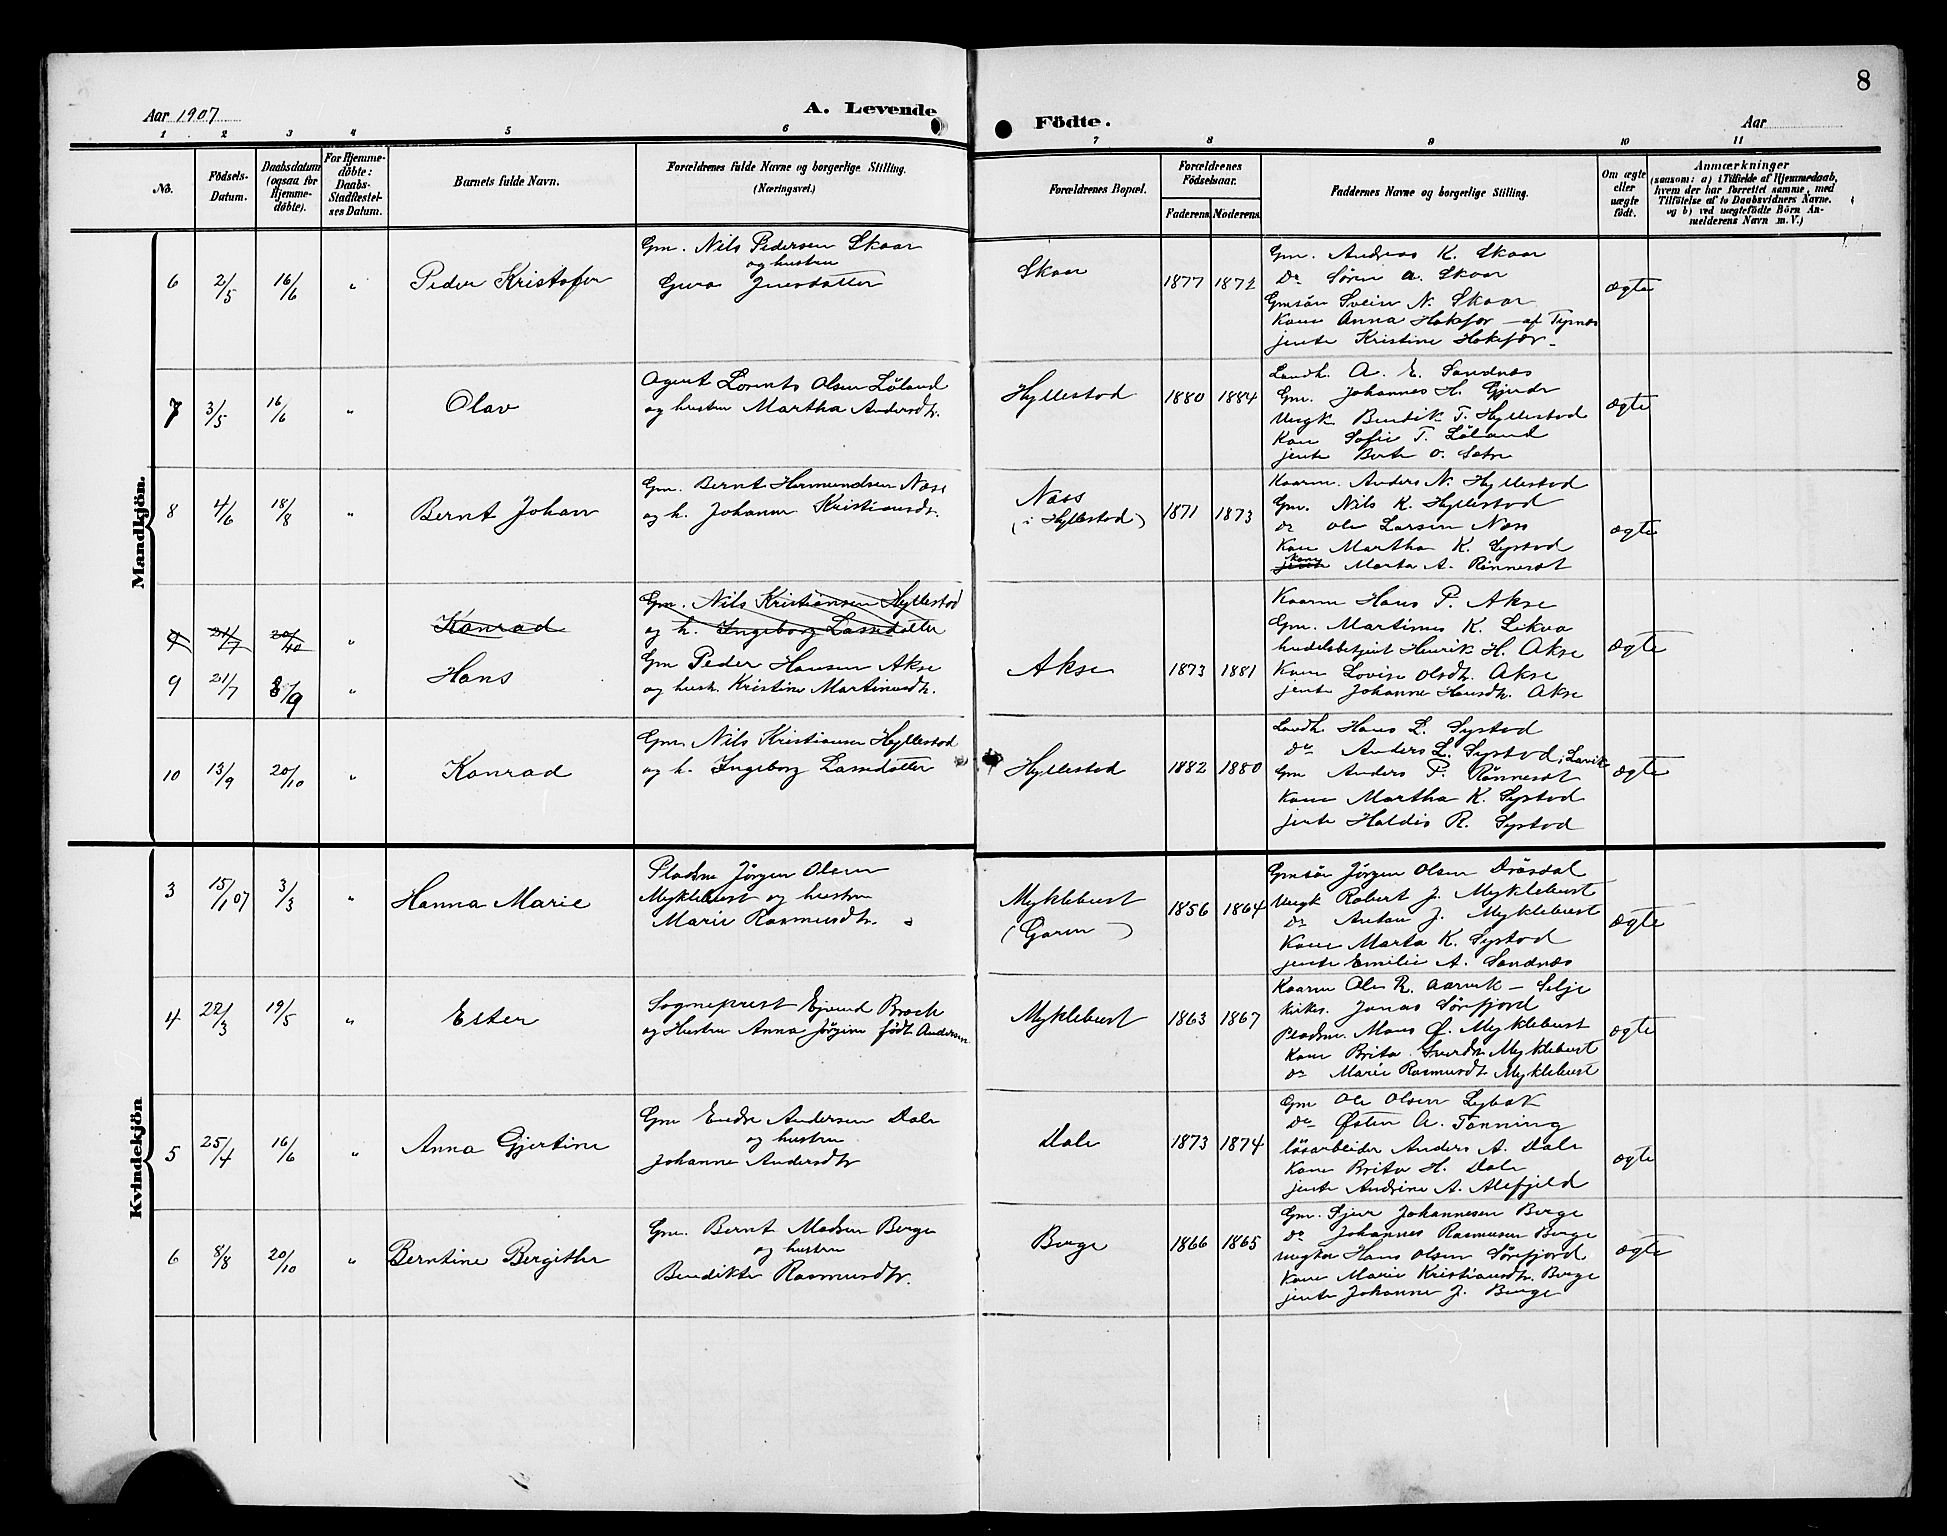 8
Aar 1907
A. Levende
Födte.
Aar
1 2 3 4 5 6 7 8 9 10 11
No.
Födsels-Datum.
Daabsdatum (ogsaa for Hjemme-döbte).
For Hjemme-döbte: Daabs-Stadfæstel-ses Datum.
Barnets fulde Navn.
Forældrenes fulde Navne og borgerlige Stilling. (Næringsvei.)
Forældrenes Bopæl.
Forældrenes Födselsaar.
Faderens Moderens
Faddernes Navne og borgerlige Stilling.
Om ægte eller uægte födt.
Anmærkninger
(saasom: a) i Tilfælde af Hjemmedaab, hvem der har forrettet samme, med Tilföielse af to Daabsvidners Navne. og b) ved uægtefödte Börn An-melderens Navn m. V.)
Mandkjön.
6 2/5 16/6 " Peder Kristofer
Gm. Nils Pedersen Skaar
og hustru
Guro
Skaar 1877 1872
Gm. Andreas K. Skaar
Do Sørin A. Skaar
Gmsön Svein N. Skaar
Kone Anna
jente Kristine
ægte
7 3/5 16/6 " Olav
Agent Lorents Olsen Löland
og hustru Martha Andersdtr.
Hyllestad 1880 1884
Landh. A. E. Sandnæs
Gm. Johannes H. Gjerde
Ungk. Bendik T. Hyllestad
Kone Sofie T. Löland
jente Berte O. Sætre
ægte
8 4/6 18/8 " Bernt Johan
Gm. Bernt Hermundsen Næss
og h. Johanne Kristiansdtr.
Næss
(i Hyllestad) 1871 1873
Kaarm. Anders N. Hyllestad
Gm. Nils K. Hyllestad
Do Ole Larsen Næss
Kone Martha K. Systad
kone
jente Marta A. Rönneset
ægte
9 21/7 20/10 " Konrad
Gm. Nils Kristiansen Hyllestad
og h. Ingeborg Larsdatter
9 21/7 8/9 " Hans
Gm Peder Hansen Akse
og hust. Kristine Martinusdtr.
Akse 1873 1881
Kaarm Hans P. Akse
Gm. Martinus K. Likva
handelsbetjent Henrik H. Akse
Kone Lovise Olsdt. Akse
jente Johanne Hansdtr. Akse
ægte
10 13/9 20/10 " Konrad
Gm. Nils Kristiansen Hyllestad
og h. Ingeborg Larsdatter
Hyllestad 1882 1880
Landh. Hans L. Systad
Do Anders L. Systad, i Lavik
Gm Anders P. Rönneset
Kone Martha K. Systad
jente Haldis R. Systad
ægte
Kvindekjön
3 15/1 07 3/3 " Hanna Marie
Pladsm Jørgen Olsen
Myklebust og hustru
Marie Rasmusdtr.
Myklebust
(Garen) 1856 1864
Gmsön Jørgen Olsen Dråsdal
Ungk Robert J. Myklebust
Do Anton J. Myklebust
Kone Marta K. Systad
jente Emilie A. Sandnæs
ægte
4 22/3 19/5 " Ester
Sogneprest Ejvind Broch
og Hustru Anna Jørgine født Andersen
Myklebust 1863 1867
Kaarm Ole R. Aarvik – Selje
Kirks. Jonas Sørefjord
Pladsm. Mons O. Myklebust
Kone Brita Sjurdt. Myklebust
Do Marie Rasmusdt Myklebust
ægte
5 25/4 16/6 " Anna Gjertine
Gm Endre Andersen Dale
og hustru
Johanne Andersdtr
Dale 1873 1874
Gm Ole Olsen Leybak
Do Østen A. Tönning
lösarbeider Anders A. Dale
Kone Brita H. Dale
jente Andrine A. Alefjeld
ægte
6 8/8 20/10 " Berntine Bergithe
Gm. Bernt Madsen Berge
og hustru
Bendikte Rasmusdtr.
Berge 1866 1865
Gm. Sjur Johannesen Berge
Do Johannes Rasmusen Berge
ungkar Hans Olsen Sørefjord
Kone Marie Kristiansdtr. Berge
jente Johanne J. Berge
ægte